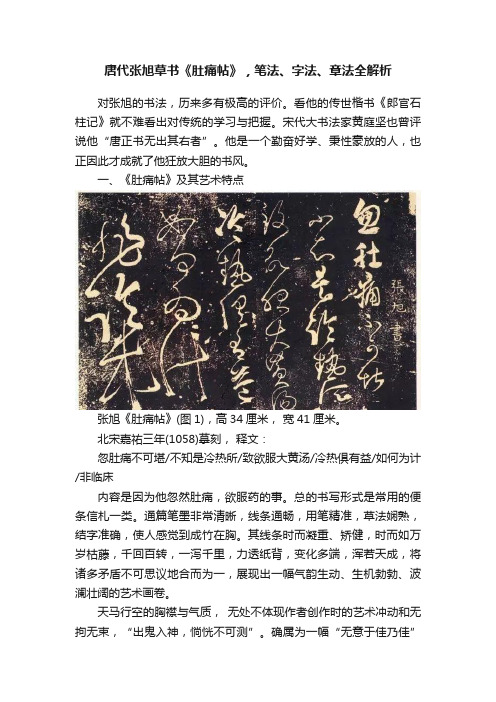 唐代张旭草书《肚痛帖》，笔法、字法、章法全解析
对张旭的书法，历来多有极高的评价。看他的传世楷书《郎官石
柱记》就不难看出对传统的学习与把握。宋代大书法家黄庭坚也曾评
说他“唐正书无出其右者”。他是一个勤奋好学、秉性豪放的人，也
正因此才成就了他狂放大胆的书风。
一、《肚痛帖》及其艺术特点
忽肚痛不可堪
張旭書
不知是冷热所
致欲服大黄汤
冷热俱有益
如何为计
非临床
张旭《肚痛帖》(图1)，高34厘米， 宽41厘米。
北宋嘉祐三年(1058)摹刻， 释文：
忽肚痛不可堪/不知是冷热所/致欲服大黄汤/冷热俱有益/如何为计
/非临床
内容是因为他忽然肚痛，欲服药的事。总的书写形式是常用的便
条信札一类。通篇笔墨非常清晰，线条通畅，用笔精准，草法娴熟，
结字准确，使人感觉到成竹在胸。其线条时而凝重、矫健，时而如万
岁枯藤，千回百转，一泻千里，力透纸背，变化多端，浑若天成，将
诸多矛盾不可思议地合而为一，展现出一幅气韵生动、生机勃勃、波
澜壮阔的艺术画卷。
天马行空的胸襟与气质， 无处不体现作者创作时的艺术冲动和无
拘无束，“出鬼入神，惝恍不可测”。确属为一幅“无意于佳乃佳”